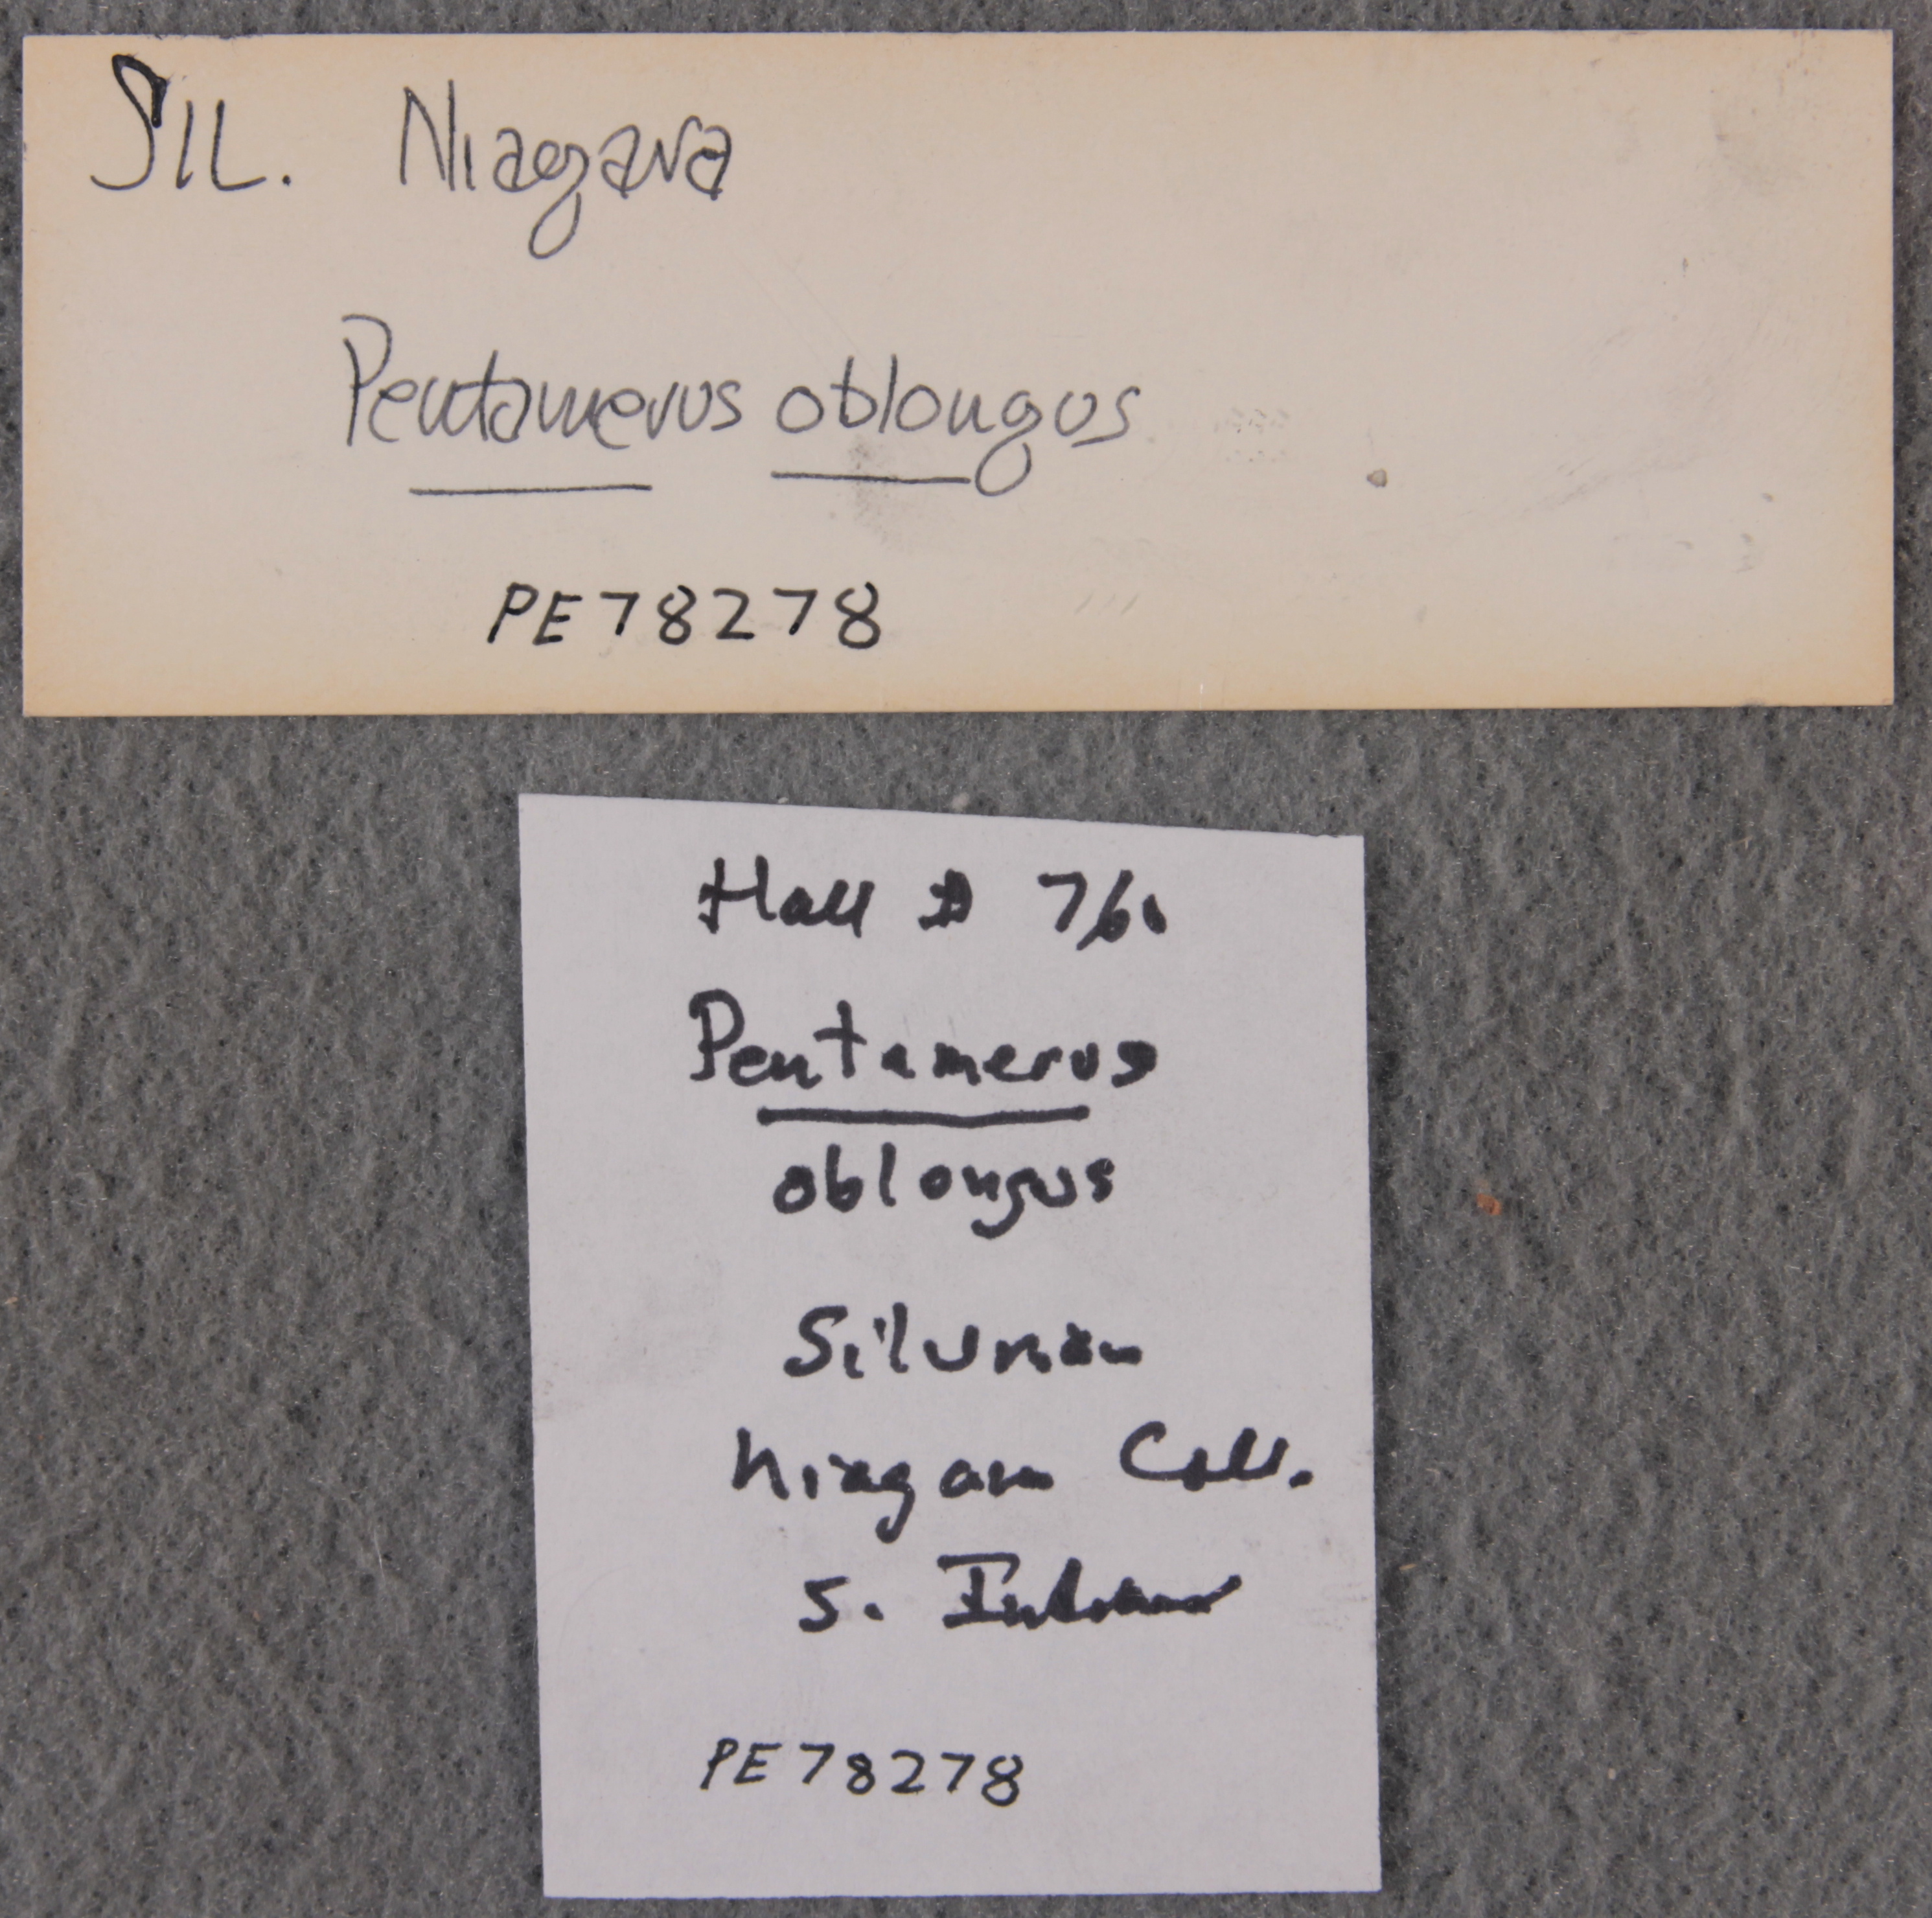 SIL. Niagara
Pentamerus oblongus
PE78278
Hall # 760
Pentamerus
oblongus
Silurian
Niagara Coll.
S. Indiana
PE78278